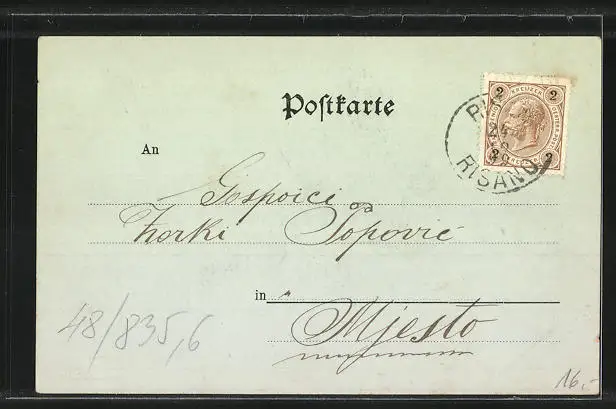 Postkarte
An
Gospoici
Zorki Popović
in
Mjesto
48/835,6
16.-
2 KREUZER 2
2 2
RISANO